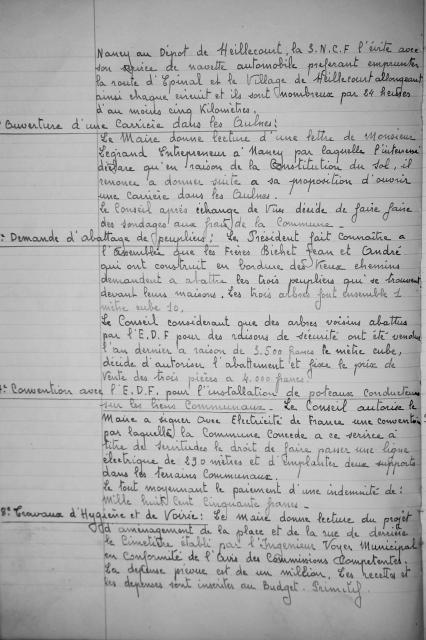 Nancy au Dépot de Heillecourt, la S.N.C.F l'évite avec
son service de navette automobile preferant emprunter
la route d'Epinal et le Village de Heillecourt allongeant
ainsi chaque circuit et ils sont nombreux par 24 heures
d'au moins cinq Kilomètres.
Ouverture d'une Carrière dans les Aulnes:
Le Maire donne lecture d'une lettre de Monsieur
Legrand Entrepreneur à Nancy par laquelle l'interessé
déclare qu'en raison de la Constitution du sol, il
renonce à donner suite a sa proposition d'ouvrir
une carrière dans les Aulnes.
Le Conseil après échange de Vues décide de faire faire
des sondages aux frais de la Commune.
Demande d'abattage de peupliers: Le Président fait connaître a
l'Assemblée que les Frères Bichet Jean et André
qui ont construit en bordure des Vieux chemins
demandent a abattre les trois peupliers qui se trouvent
devant leurs maisons. Les trois arbres font ensemble 1
mètre cube 10.
Le Conseil considerant que des arbres voisins abattus
par l'E.D.F pour des raisons de sécurité ont été vendus
l'an dernier a raison de 3.500 francs le mètre cube,
décide d'autoriser l'abattement et fixe le prix de
Vente des trois pièces a 4.000 francs.
Convention avec l'E.D.F. pour l'installation de poteaux conducteurs
sur les biens Communaux. - Le Conseil autorise le
Maire a signer avec Electricité de France une convention
par laquelle la Commune Concede a ce service à
titre de servitudes le droit de faire passer une ligne
électrique de 290 mètres et d'implanter deux supports
dans les terrains Communaux.
Le tout moyennant le paiement d'une indemnité de:
Mille huit Cent Cinquante francs -
8° Travaux d'Hygiène et de Voirie: Le Maire donne lecture du projet
d'aménagement de la place et de la rue de derrière
le Cimetière établi par l'Ingenieur Voyer Municipal
en conformité de l'Avis des Commissions Competentes.
La dépense prévue est de un million. Les recettes et
les depenses sont inscrites au Budget. Primitif.